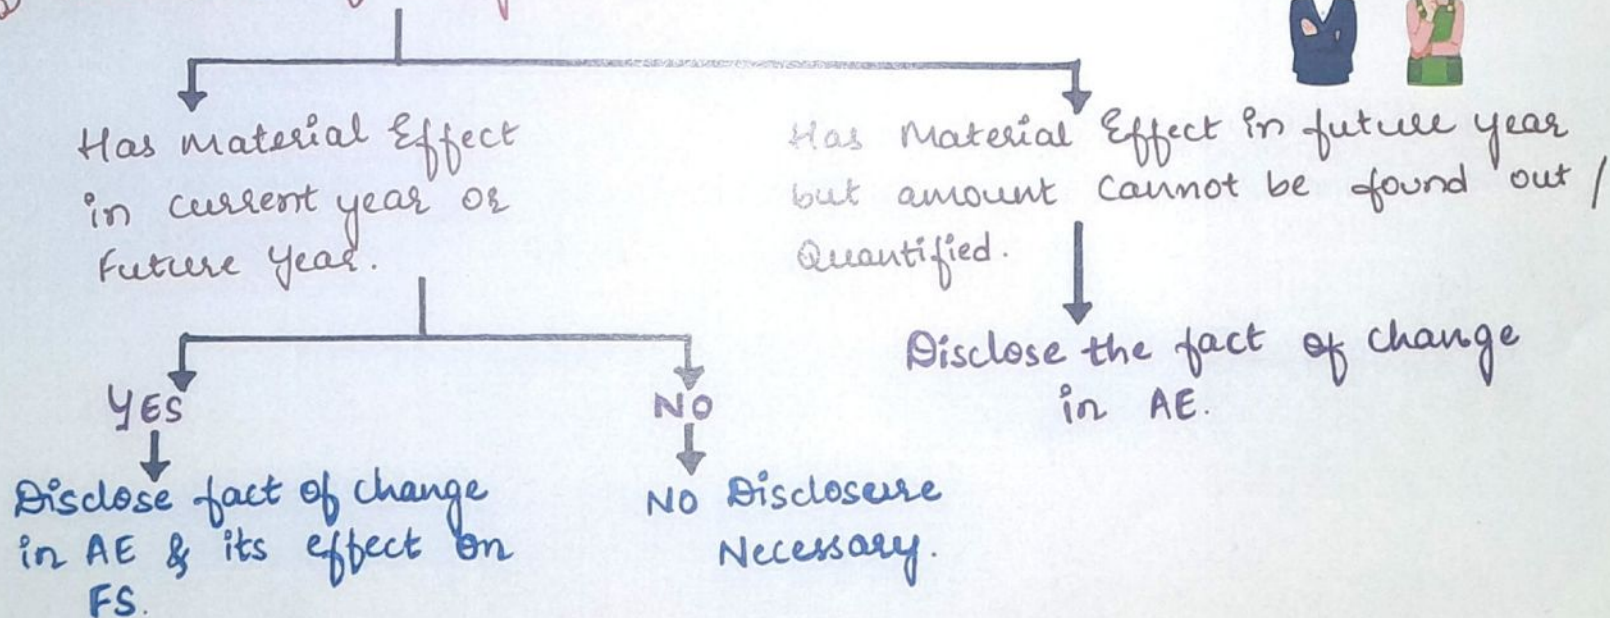 Has Material Effect
in current year or
Future Year.
Has Material Effect in future year
but amount cannot be found out /
Quantified.
Disclose the fact of change
in AE.
YES
NO
Disclose fact of change
in AE & its effect on
FS.
NO Disclosure
Necessary.